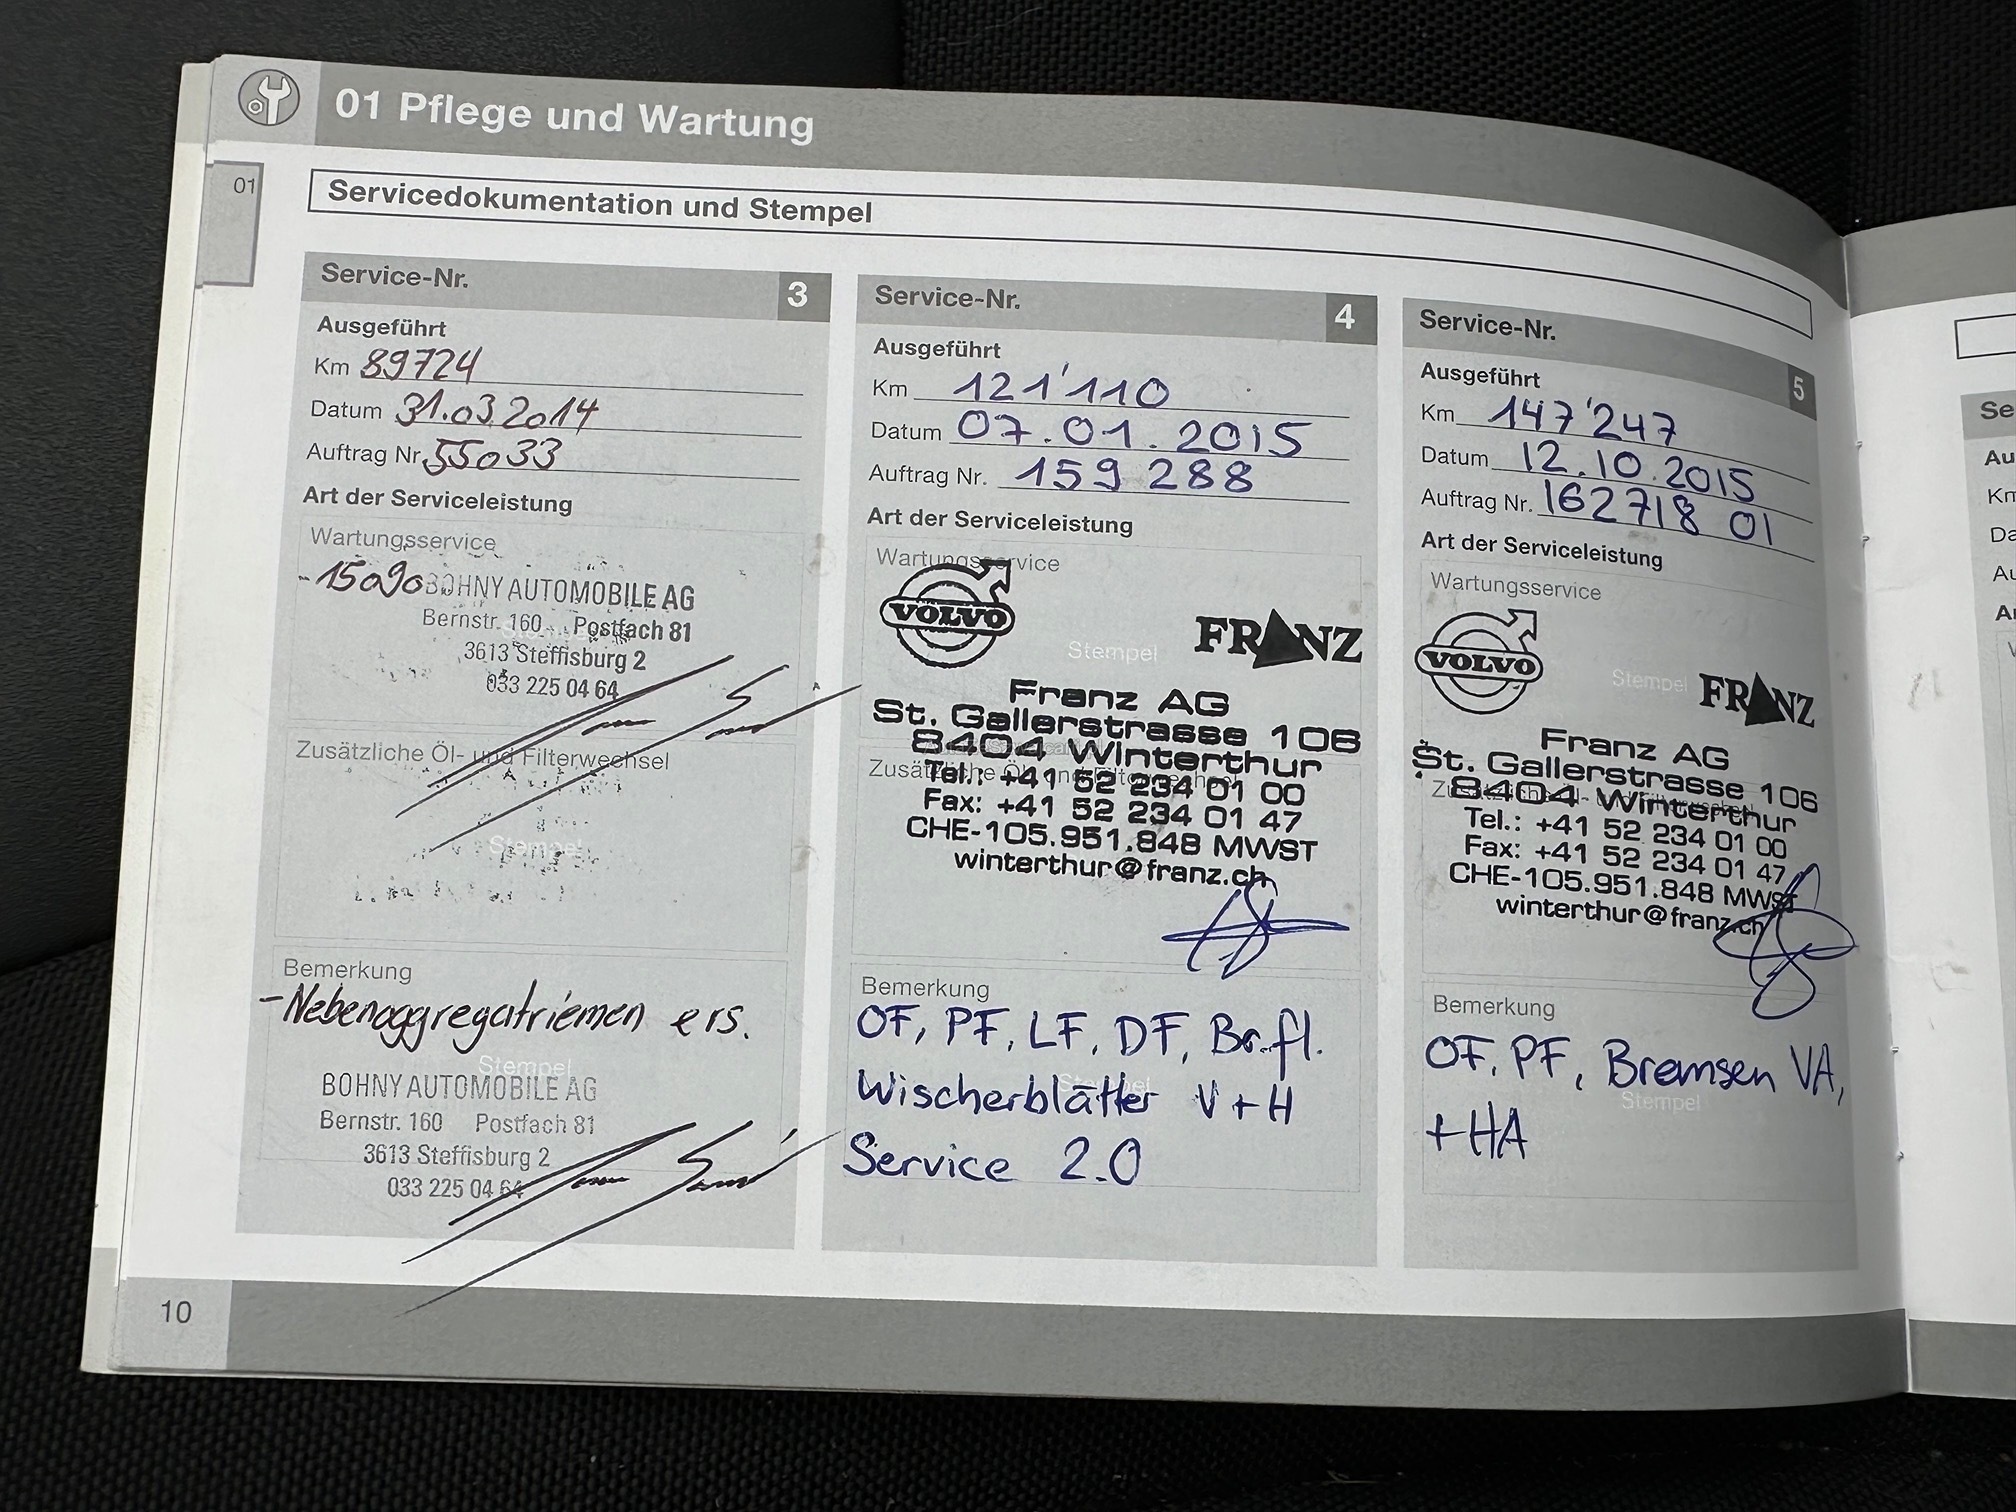 01 Pflege und Wartung
01
Servicedokumentation und Stempel
Service-Nr. 3
Ausgeführt
Km 89724
Datum 31.03.2014
Auftrag Nr. 55033
Art der Serviceleistung
Wartungsservice
BOHNY AUTOMOBILE AG
Bernstr. 160 Postfach 81
3613 Steffisburg 2
033 225 04 64
Zusätzliche Öl- und Filterwechsel
Stempel
Bemerkung
-Nebenaggregatriemen ers.
Stempel
BOHNY AUTOMOBILE AG
Bernstr. 160 Postfach 81
3613 Steffisburg 2
033 225 04 64
Service-Nr. 4
Ausgeführt
Km 121'110
Datum 07.01.2015
Auftrag Nr. 159 288
Art der Serviceleistung
Wartungsservice
VOLVO
Stempel
FRANZ
Franz AG
St. Gallerstrasse 106
8404 Winterthur
Zusätzliche Öl- und Filterwechsel
Tel.: +41 52 234 01 00
Fax: +41 52 234 01 47
CHE-105.951.848 MWST
winterthur@franz.ch
Bemerkung
OF, PF, LF, DF, Br.fl.
Wischerblätter V+H
Stempel
Service 2.0
Service-Nr. 5
Ausgeführt
Km 147'247
Datum 12.10.2015
Auftrag Nr. 162718 01
Art der Serviceleistung
Wartungsservice
VOLVO
Stempel
FRANZ
Franz AG
St. Gallerstrasse 106
8404 Winterthur
Tel.: +41 52 234 01 00
Fax: +41 52 234 01 47
CHE-105.951.848 MWST
winterthur@franz.ch
Bemerkung
OF, PF, Bremsen VA,
Stempel
+HA
10